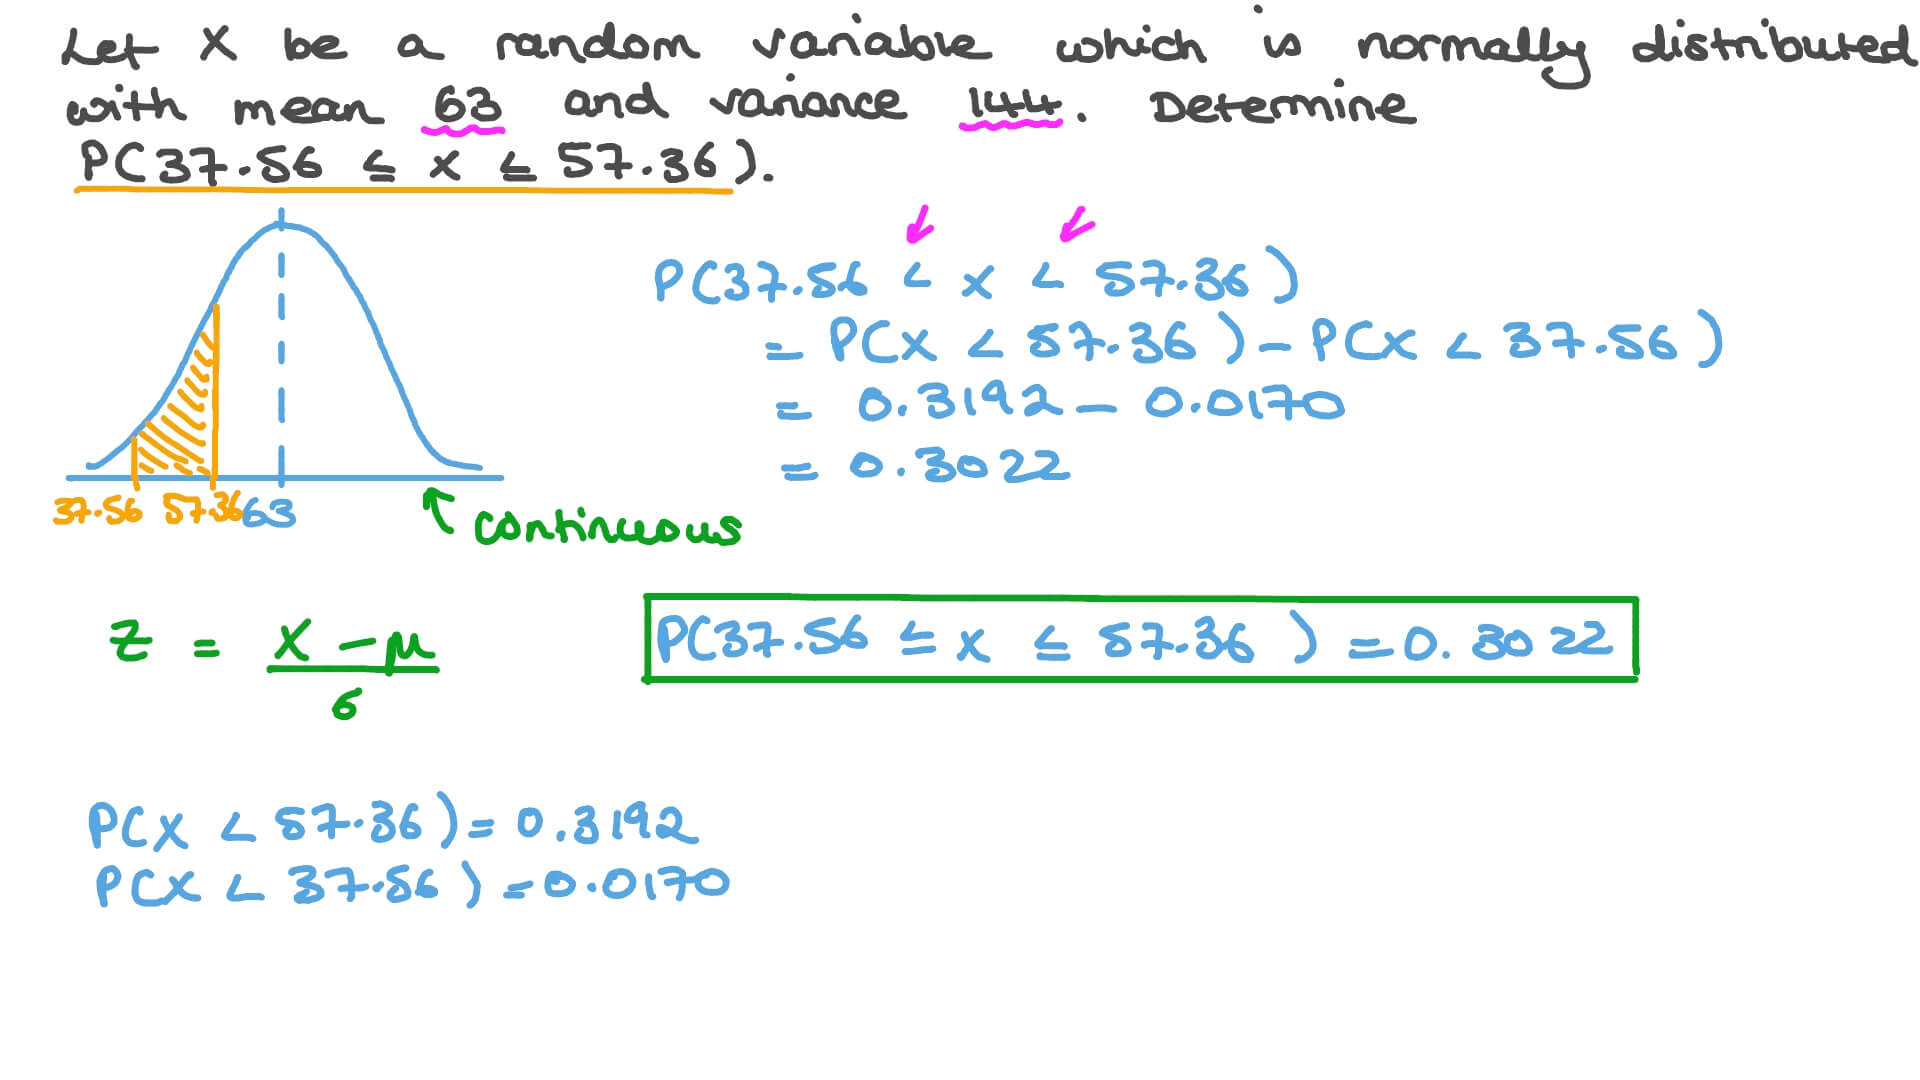 Let X be a random variable which is normally distributed
with mean 63 and variance 144. Determine
P(37.56 ≤ x ≤ 57.36).
P(37.56 < x < 57.36)
= P(x < 57.36) - P(x < 37.56)
= 0.3192 - 0.0170
= 0.3022
37.56 57.36 63
continuous
z = x - μ
σ
P(37.56 ≤ x ≤ 57.36) = 0.3022
P(x < 57.36) = 0.3192
P(x < 37.56) = 0.0170